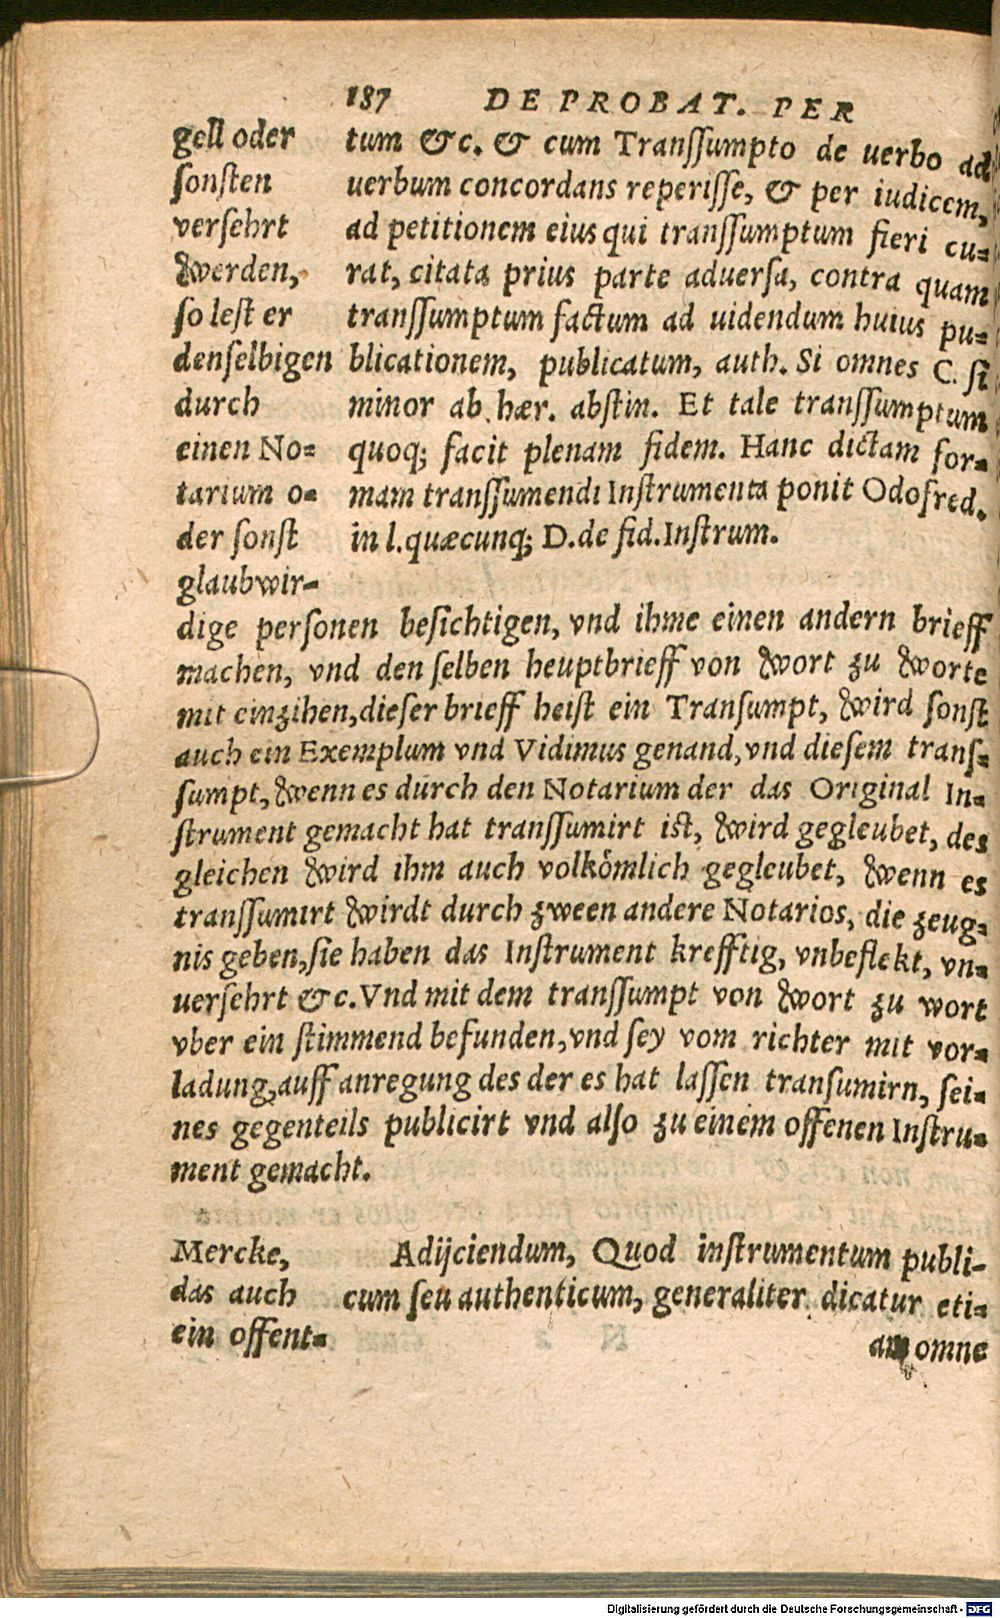 187 DE PROBAT. PER
gell oder
ſonſten
verſehrt
werden,
ſo leſt er
denſelbigen
durch
einen No=
tarium o=
der ſonſt
glaubwir=
tum &c. & cum Tranſſumpto de uerbo ad
uerbum concordans reperiſſe, & per iudicem,
ad petitionem eius qui tranſſumptum fieri cu=
rat, citata prius parte aduerſa, contra quam
tranſſumptum factum ad uidendum huius pu=
blicationem, publicatum, auth. Si omnes C. ſi
minor ab hær. abſtin. Et tale tranſſumptum
quoq; facit plenam fidem. Hanc dictam for=
mam tranſſumendi Inſtrumenta ponit Odofred.
in l. quæcunq; D. de fid. Inſtrum.
dige perſonen beſichtigen, vnd ihme einen andern brieff
machen, vnd den ſelben heuptbrieff von wort zu worte
mit einzihen, dieſer brieff heiſt ein Tranſumpt, wird ſonſt
auch ein Exemplum vnd Vidimus genand, vnd dieſem tranſ=
ſumpt, wenn es durch den Notarium der das Original In=
ſtrument gemacht hat tranſſumirt iſt, wird gegleubet, des
gleichen wird ihm auch volkömlich gegleubet, wenn es
tranſſumirt wirdt durch zween andere Notarios, die zeug=
nis geben, ſie haben das Inſtrument krefftig, vnbeflekt, vn=
uerſehrt &c. Vnd mit dem tranſſumpt von wort zu wort
vber ein ſtimmend befunden, vnd ſey vom richter mit vor=
ladung, auff anregung des der es hat laſſen tranſumirn, ſei=
nes gegenteils publicirt vnd alſo zu einem offenen Inſtru=
ment gemacht.
Mercke,
das auch
ein offent=
Adijciendum, Quod inſtrumentum publi-
cum ſeu authenticum, generaliter dicatur eti=
am omne
Digitalisierung gefördert durch die Deutsche Forschungsgemeinschaft - DFG